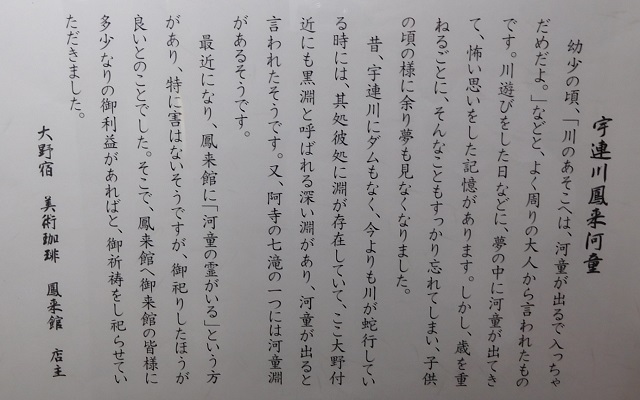 宇連川鳳来河童
幼少の頃、「川のあそこへは、河童が出るで入っちゃ
だめだよ。」などと、よく周りの大人から言われたもの
です。川遊びをした日などに、夢の中に河童が出てき
て、怖い思いをした記憶があります。しかし、歳を重
ねるごとに、そんなこともすっかり忘れてしまい、子供
の頃の様に余り夢も見なくなりました。
昔、宇連川にダムもなく、今よりも川が蛇行してい
る時には、其処彼処に淵が存在していて、ここ大野付
近にも黒淵と呼ばれる深い淵があり、河童が出ると
言われたそうです。又、阿寺の七滝の一つには河童淵
があるそうです。
最近になり、鳳来館に「河童の霊がいる」という方
があり、特に害はないそうですが、御祀りしたほうが
良いとのことでした。そこで、鳳来館へ御来館の皆様に
多少なりの御利益があればと、御祈祷をし祀らせてい
ただきました。
大野宿 美術珈琲 鳳来館 店主